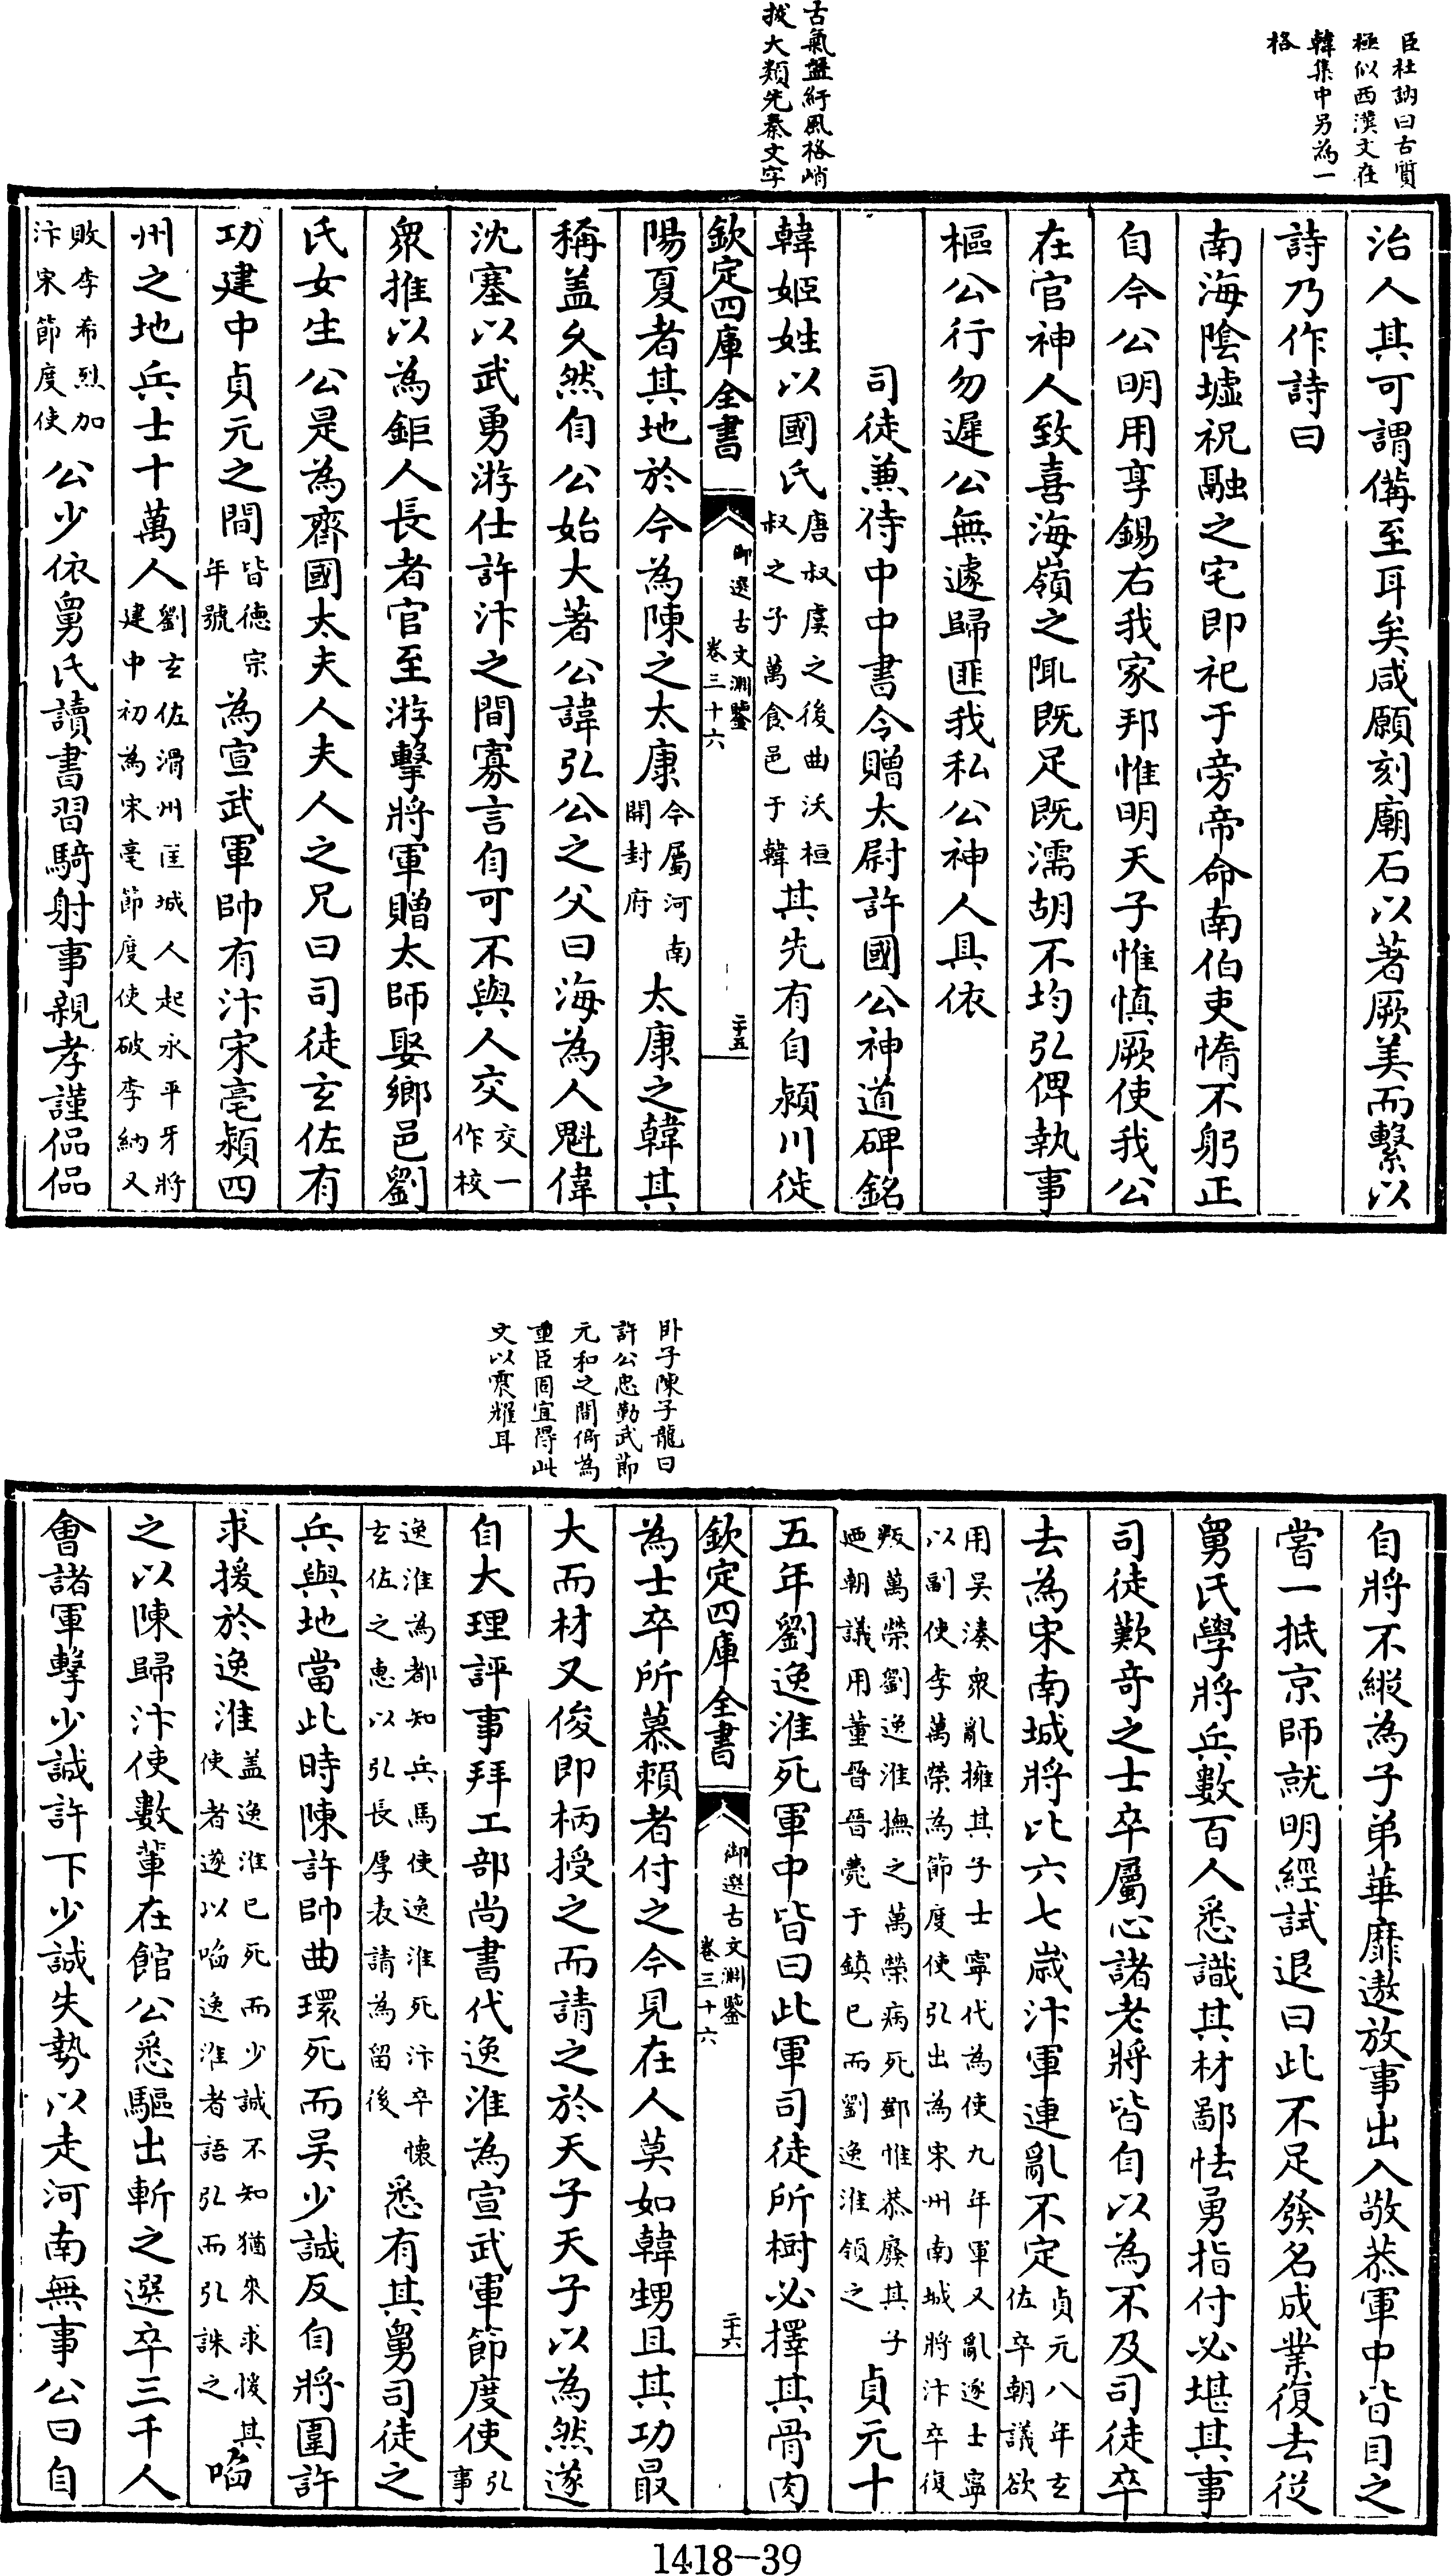 臣杜訥曰古質
極似西漢文在
韓集中另為一
格
古氣盤紆風格峭
拔大類先秦文字
治人其可謂備至耳矣咸願刻廟石以著厥美而繫以
詩乃作詩曰
南海陰墟祝融之宅即祀于旁帝命南伯吏惰不躬正
自今公明用享錫右我家邦惟明天子惟慎厥使我公
在官神人致喜海嶺之陬既足既濡胡不均弘俾執事
樞公行勿遲公無遽歸匪我私公神人具依
司徒兼侍中中書令贈太尉許國公神道碑銘
韓姬姓以國氏唐叔虞之後曲沃桓叔之子萬食邑于韓其先有自潁川徙
欽定四庫全書
御選古文淵鑒
卷三十六
二十五
陽夏者其地於今為陳之太康今屬河南開封府太康之韓其
稱盖久然自公始大著公諱弘公之父曰海為人魁偉
沈塞以武勇游仕許汴之間寡言自可不與人交交一作校
衆推以為鉅人長者官至游擊將軍贈太師娶鄉邑劉
氏女生公是為齊國太夫人夫人之兄曰司徒玄佐有
功建中貞元之間皆德宗年號為宣武軍帥有汴宋亳潁四
州之地兵士十萬人劉玄佐滑州匡城人起永平牙將建中初為宋亳節度使破李納又
敗李希烈加汴宋節度使公少依舅氏讀書習騎射事親孝謹偘偘
卧子陳子龍曰
許公忠勤武節
元和之間倚為
重臣固宜得此
文以震耀耳
自將不縱為子弟華靡遨放事出入敬恭軍中皆目之
嘗一抵京師就明經試退曰此不足發名成業復去從
舅氏學將兵數百人悉識其材鄙怯勇指付必堪其事
司徒歎奇之士卒屬心諸老將皆自以為不及司徒卒
去為宋南城將比六七歲汴軍連亂不定貞元八年玄佐卒朝議欲
用吴湊衆亂擁其子士寧代為使九年軍又亂逐士寧以副使李萬榮為節度使弘出為宋州南城將汴卒復
叛萬榮劉逸淮撫之萬榮病死鄧惟恭廢其子廼朝議用董晉晉薨于鎮已而劉逸淮領之貞元十
五年劉逸淮死軍中皆曰此軍司徒所樹必擇其骨肉
欽定四庫全書
御選古文淵鑒
卷三十六
二十六
為士卒所慕賴者付之今見在人莫如韓甥且其功最
大而材又俊即柄授之而請之於天子天子以為然遂
自大理評事拜工部尚書代逸淮為宣武軍節度使弘事
逸淮為都知兵馬使逸淮死汴卒懷玄佐之惠以弘長厚表請為留後悉有其舅司徒之
兵與地當此時陳許帥曲環死而吴少誠反自將圍許
求援於逸淮盖逸淮已死而少誠不知猶來求援其使者遂以啗逸淮者語弘而弘誅之啗
之以陳歸汴使數輩在館公悉驅出斬之選卒三千人
會諸軍擊少誠許下少誠失勢以走河南無事公曰自
1418-39